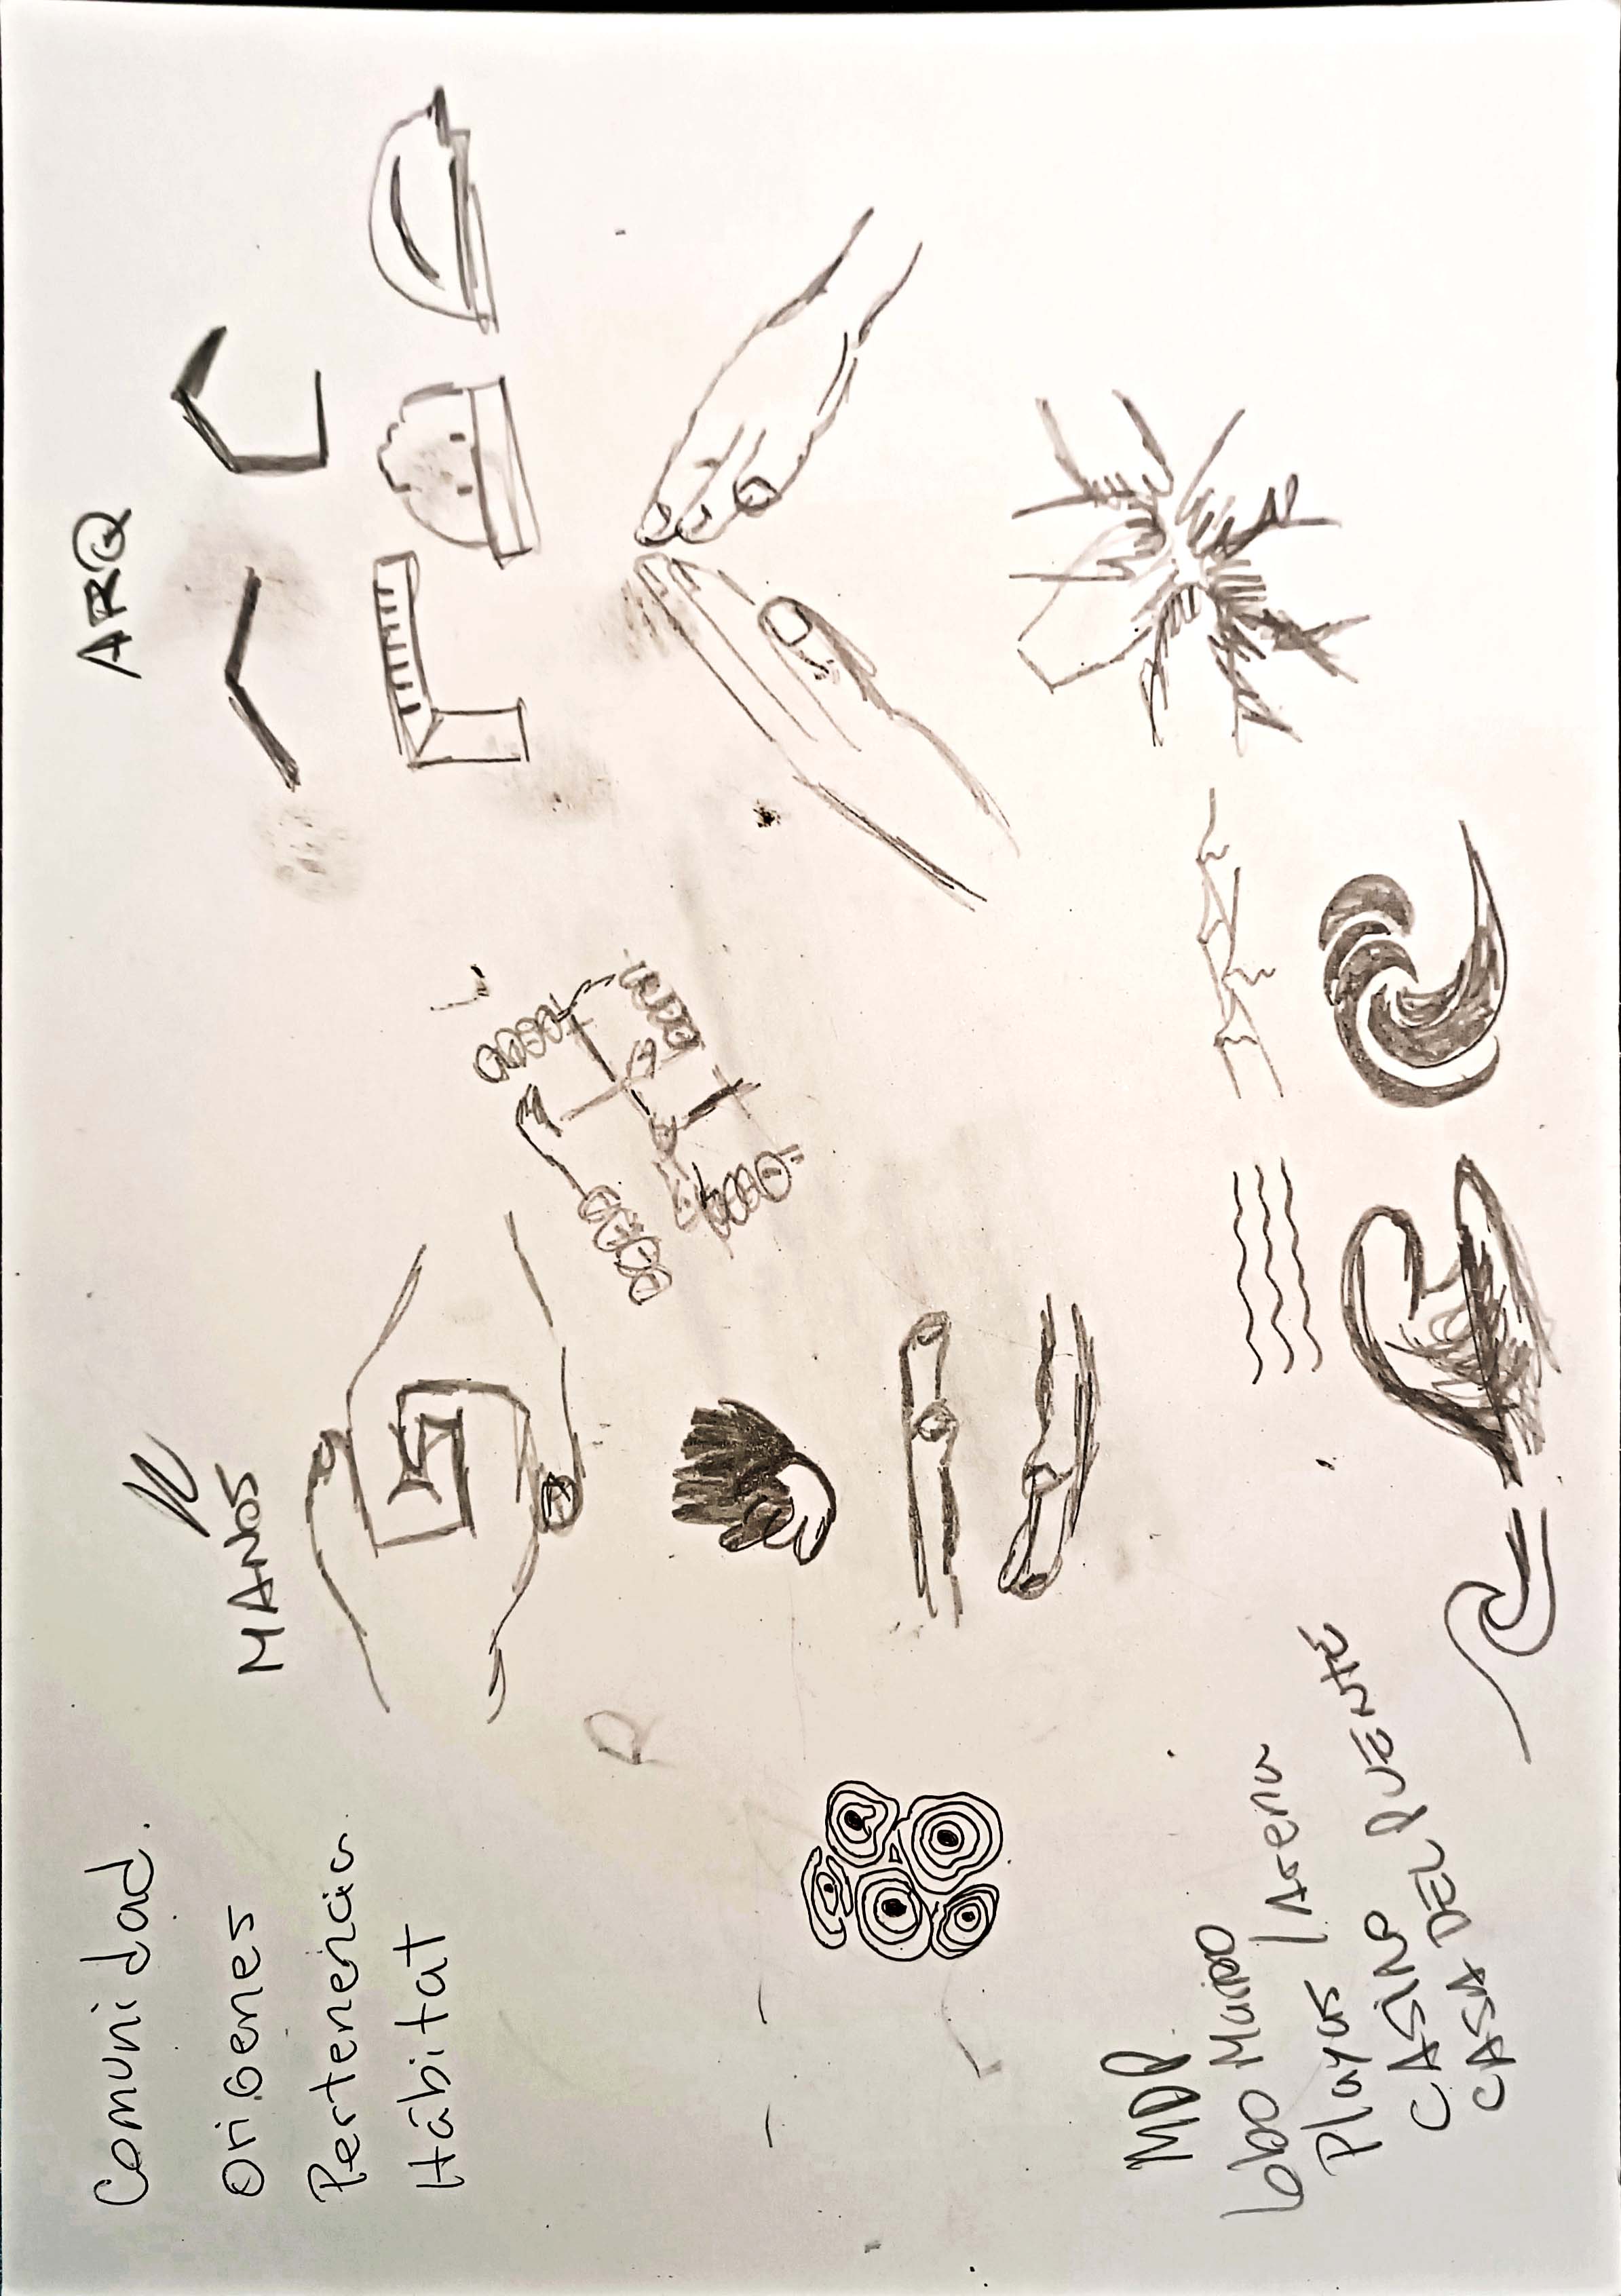 Comunidad.
Origenes
Pertenencia
Hábitat
MANOS
ARQ
MDP
Lobo Marino
Playas / Arena
CASINO
CASA DEL PUENTE